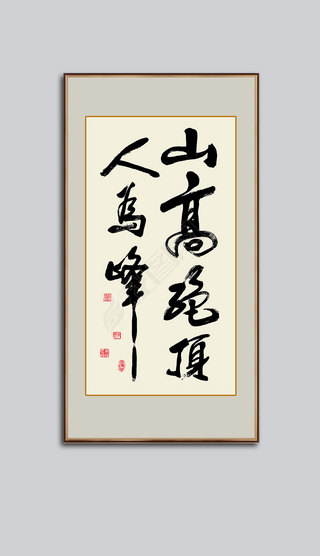 山高绝顶
人為峰